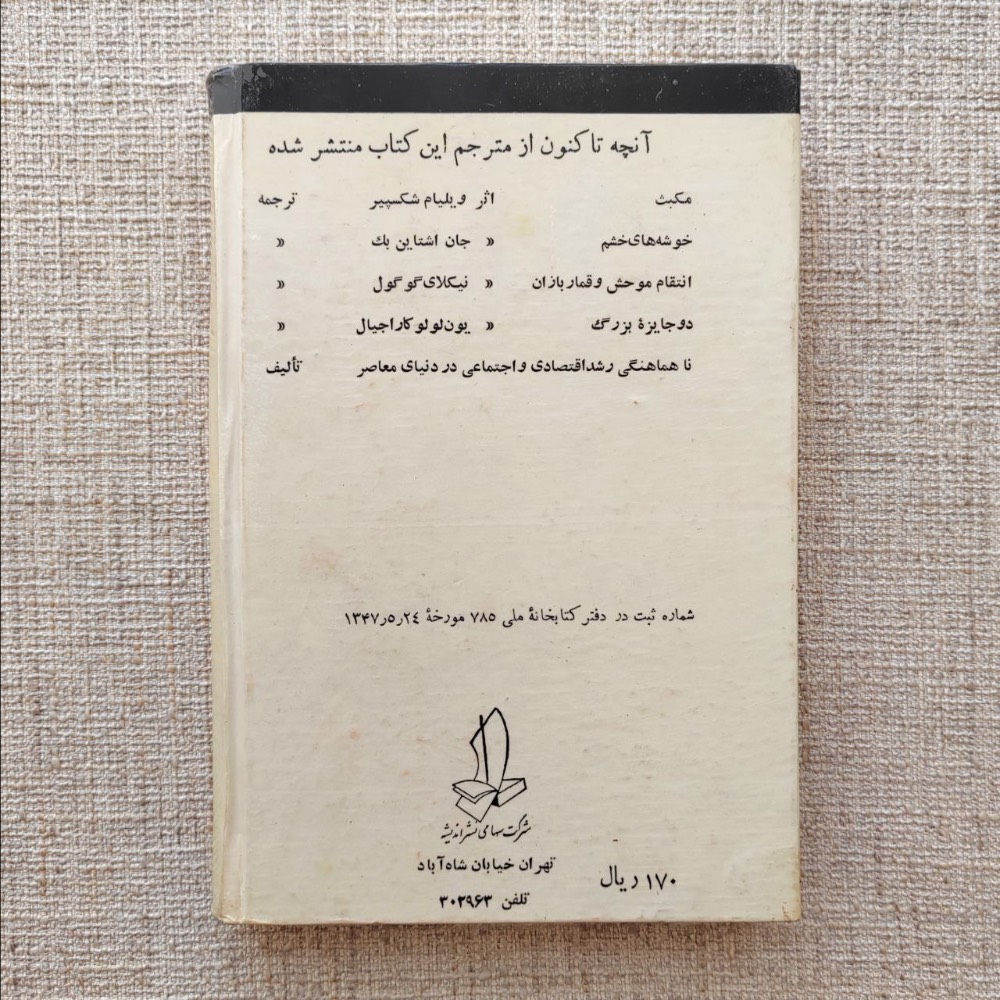 آنچه تاکنون از مترجم این کتاب منتشر شده
مکبث اثر ویلیام شکسپیر ترجمه
خوشه‌های خشم » جان اشتاین بك »
انتقام موحش و قماربازان » نیکلای گوگول »
دو جایزهٔ بزرگ » یون لولو کاراجیال »
ناهماهنگی رشد اقتصادی و اجتماعی در دنیای معاصر تألیف
شماره ثبت در دفتر کتابخانهٔ ملی ۷۸۵ مورخهٔ ۱۳۴۷٫۵٫۲۴
شرکت سهامی نشر اندیشه
تهران خیابان شاه‌آباد
۱۷۰ ریال
تلفن ۳۰۲۹۶۳